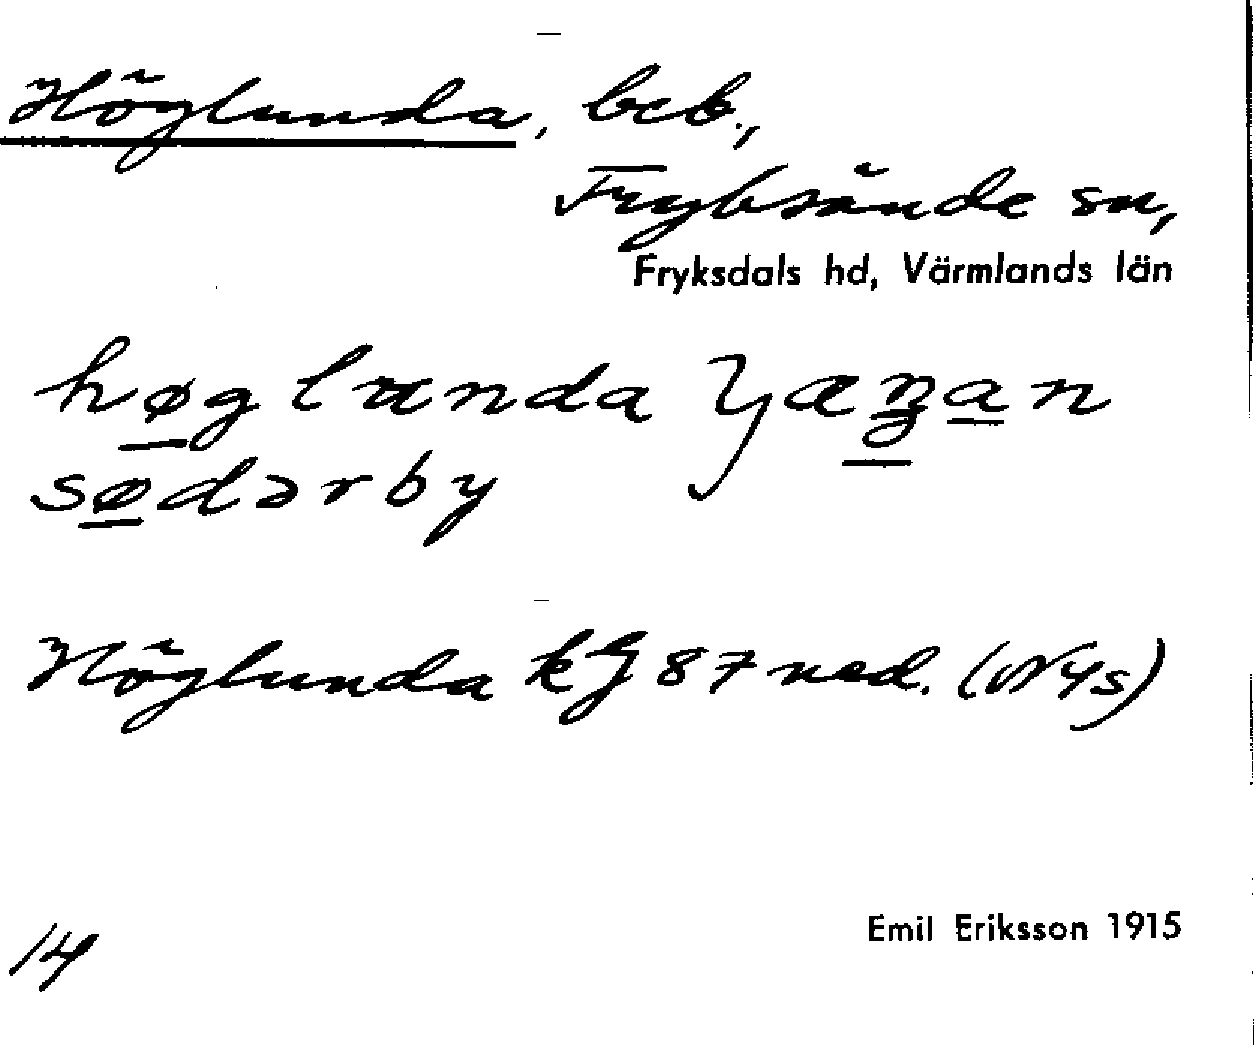 Höglunda, beb.,
Fryksände sn,
Fryksdals hd, Värmlands län
høglunda
sødərby
Höglunda kG 87 ned. (N Ys)
Emil Eriksson 1915
14